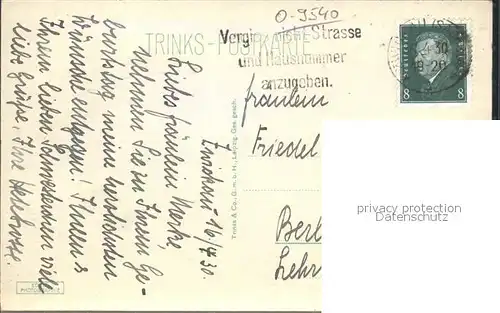 0-9540
TRINKS-POSTKARTE
Vergiß nicht Strasse
und Hausnummer
anzugeben.
4.30
19-20
8 8
Zwickau 16/4 30.
Liebes Fräulein Merke,
nehmen Sie zu Ihrem Ge-
burtstag meine herzlichsten
Wünsche entgegen! Ihnen &
Ihrem lieben Schwesterchen viele
liebe Grüße, Ihre
Trinks & Co., G. m. b. H., Leipzig Ges. gesch.
Fräulein
Friedel
Berl
Lehr
Privacy Protection
Datenschutz